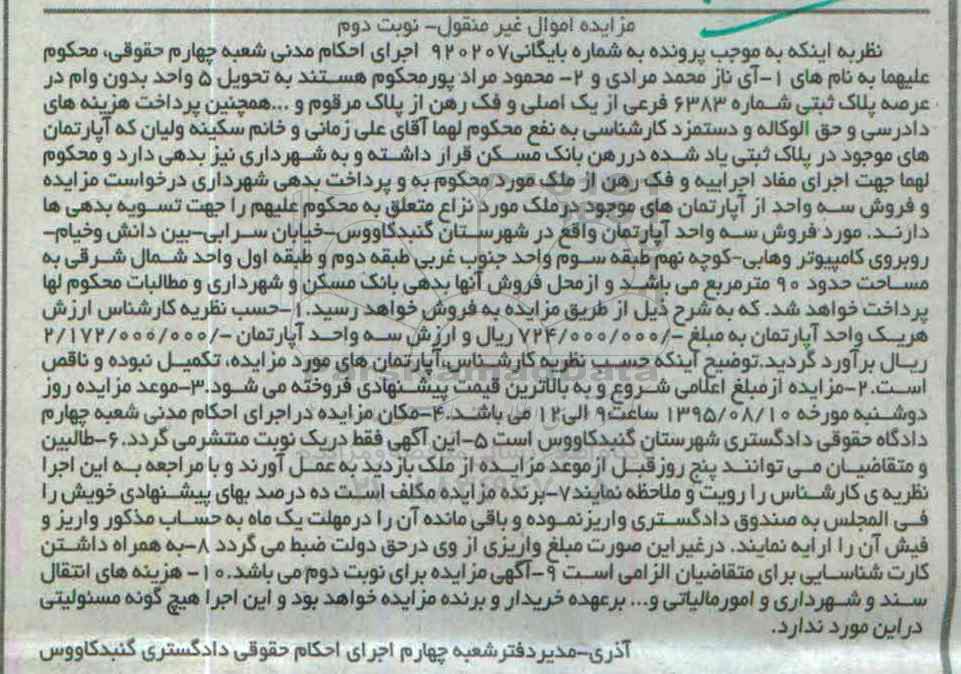 مزایده اموال غیر منقول- نوبت دوم
نظربه اینکه به موجب پرونده به شماره بایگانی۹۲۰۲۰۷ اجرای احکام مدنی شعبه چهارم حقوقی، محکوم
علیهما به نام های ۱-آی ناز محمد مرادی و ۲- محمود مراد پورمحکوم هستند به تحویل ۵ واحد بدون وام در
عرصه پلاک ثبتی شماره ۶۳۸۳ فرعی از یک اصلی و فک رهن از پلاک مرقوم و ...همچنین پرداخت هزینه های
دادرسی و حق الوکاله و دستمزد کارشناسی به نفع محکوم لهما آقای علی زمانی و خانم سکینه ولیان که آپارتمان
های موجود در پلاک ثبتی یاد شده دررهن بانک مسکن قرار داشته و به شهرداری نیز بدهی دارد و محکوم
لهما جهت اجرای مفاد اجراییه و فک رهن از ملک مورد محکوم به و پرداخت بدهی شهرداری درخواست مزایده
و فروش سه واحد از آپارتمان های موجود درملک مورد نزاع متعلق به محکوم علیهم را جهت تسویه بدهی ها
دارند. مورد فروش سه واحد آپارتمان واقع در شهرستان گنبدکاووس-خیابان سرابی-بین دانش وخیام-
روبروی کامپیوتر وهابی-کوچه نهم طبقه سوم واحد جنوب غربی طبقه دوم و طبقه اول واحد شمال شرقی به
مساحت حدود ۹۰ مترمربع می باشد و ازمحل فروش آنها بدهی بانک مسکن و شهرداری و مطالبات محکوم لها
پرداخت خواهد شد. که به شرح ذیل از طریق مزایده به فروش خواهد رسید.۱-حسب نظریه کارشناس ارزش
هریک واحد آپارتمان به مبلغ -/۷۲۴/۰۰۰/۰۰۰ ریال و ارزش سه واحد آپارتمان -/۲/۱۷۲/۰۰۰/۰۰۰
ریال برآورد گردید.توضیح اینکه حسب نظریه کارشناس آپارتمان های مورد مزایده، تکمیل نبوده و ناقص
است.۲-مزایده ازمبلغ اعلامی شروع و به بالاترین قیمت پیشنهادی فروخته می شود.۳-موعد مزایده روز
دوشنبه مورخه ۱۳۹۵/۰۸/۱۰ ساعت۹ الی۱۲ می باشد.۴-مکان مزایده دراجرای احکام مدنی شعبه چهارم
دادگاه حقوقی دادگستری شهرستان گنبدکاووس است ۵-این آگهی فقط دریک نوبت منتشرمی گردد.۶-طالبین
و متقاضیان می توانند پنج روزقبل ازموعد مزایده از ملک بازدید به عمل آورند و با مراجعه به این اجرا
نظریه ی کارشناس را رویت و ملاحظه نمایند۷-برنده مزایده مکلف است ده درصد بهای پیشنهادی خویش را
فی المجلس به صندوق دادگستری واریزنموده و باقی مانده آن را درمهلت یک ماه به حساب مذکور واریز و
فیش آن را ارایه نمایند. درغیراین صورت مبلغ واریزی از وی درحق دولت ضبط می گردد ۸-به همراه داشتن
کارت شناسایی برای متقاضیان الزامی است ۹-آگهی مزایده برای نوبت دوم می باشد.۱۰- هزینه های انتقال
سند و شهرداری و امورمالیاتی و... برعهده خریدار و برنده مزایده خواهد بود و این اجرا هیچ گونه مسئولیتی
دراین مورد ندارد.
آذری-مدیردفترشعبه چهارم اجرای احکام حقوقی دادگستری گنبدکاووس